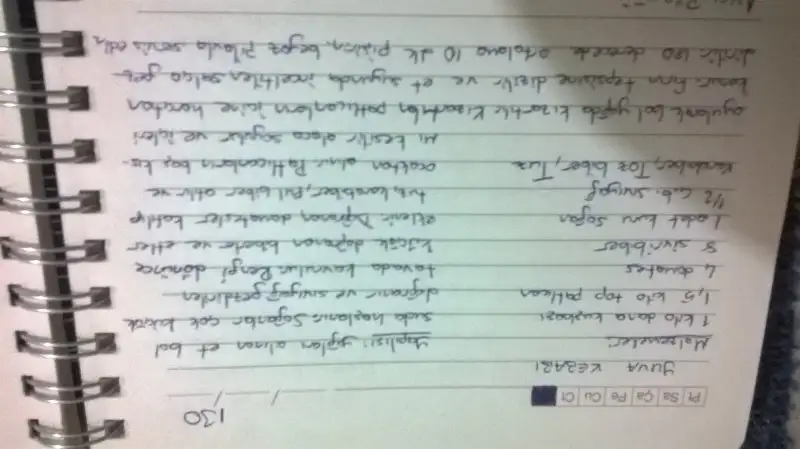 Pt Sa Ça Pe Cu Ct
130
YUVA KEBABI
Malzemeler
1 kilo dana kuşbaşı
1,5 kilo top patlıcan
4 domates
8 sivribiber
1 adet kuru soğan
1/2 ç.b. sıvıyağ
Karabiber, Toz biber, Tuz
Yapılışı: yağları alınan et bol
suda haşlanır. Soğanlar çok küçük
doğranır ve sıvıyağ gezdirilen
tavada kavrulur. Rengi dönünce
küçük doğranan biberler ve etler
eklenir. Doğranan domatesler katılıp
tuz, karabiber, pul biber atılır ve
ocaktan alınır. Patlıcanların baş kıs-
mı kesilir alaca soyulur ve içleri
oyularak bol yağda kızartılır. Kızartılan patlıcanların içine harçtan
konur. Fırın tepsisine dizilir ve et suyunda inceltilen salça gez-
dirilir. 180 derecede ortalama 10 dk pişirin. beyaz pilavla servis edin